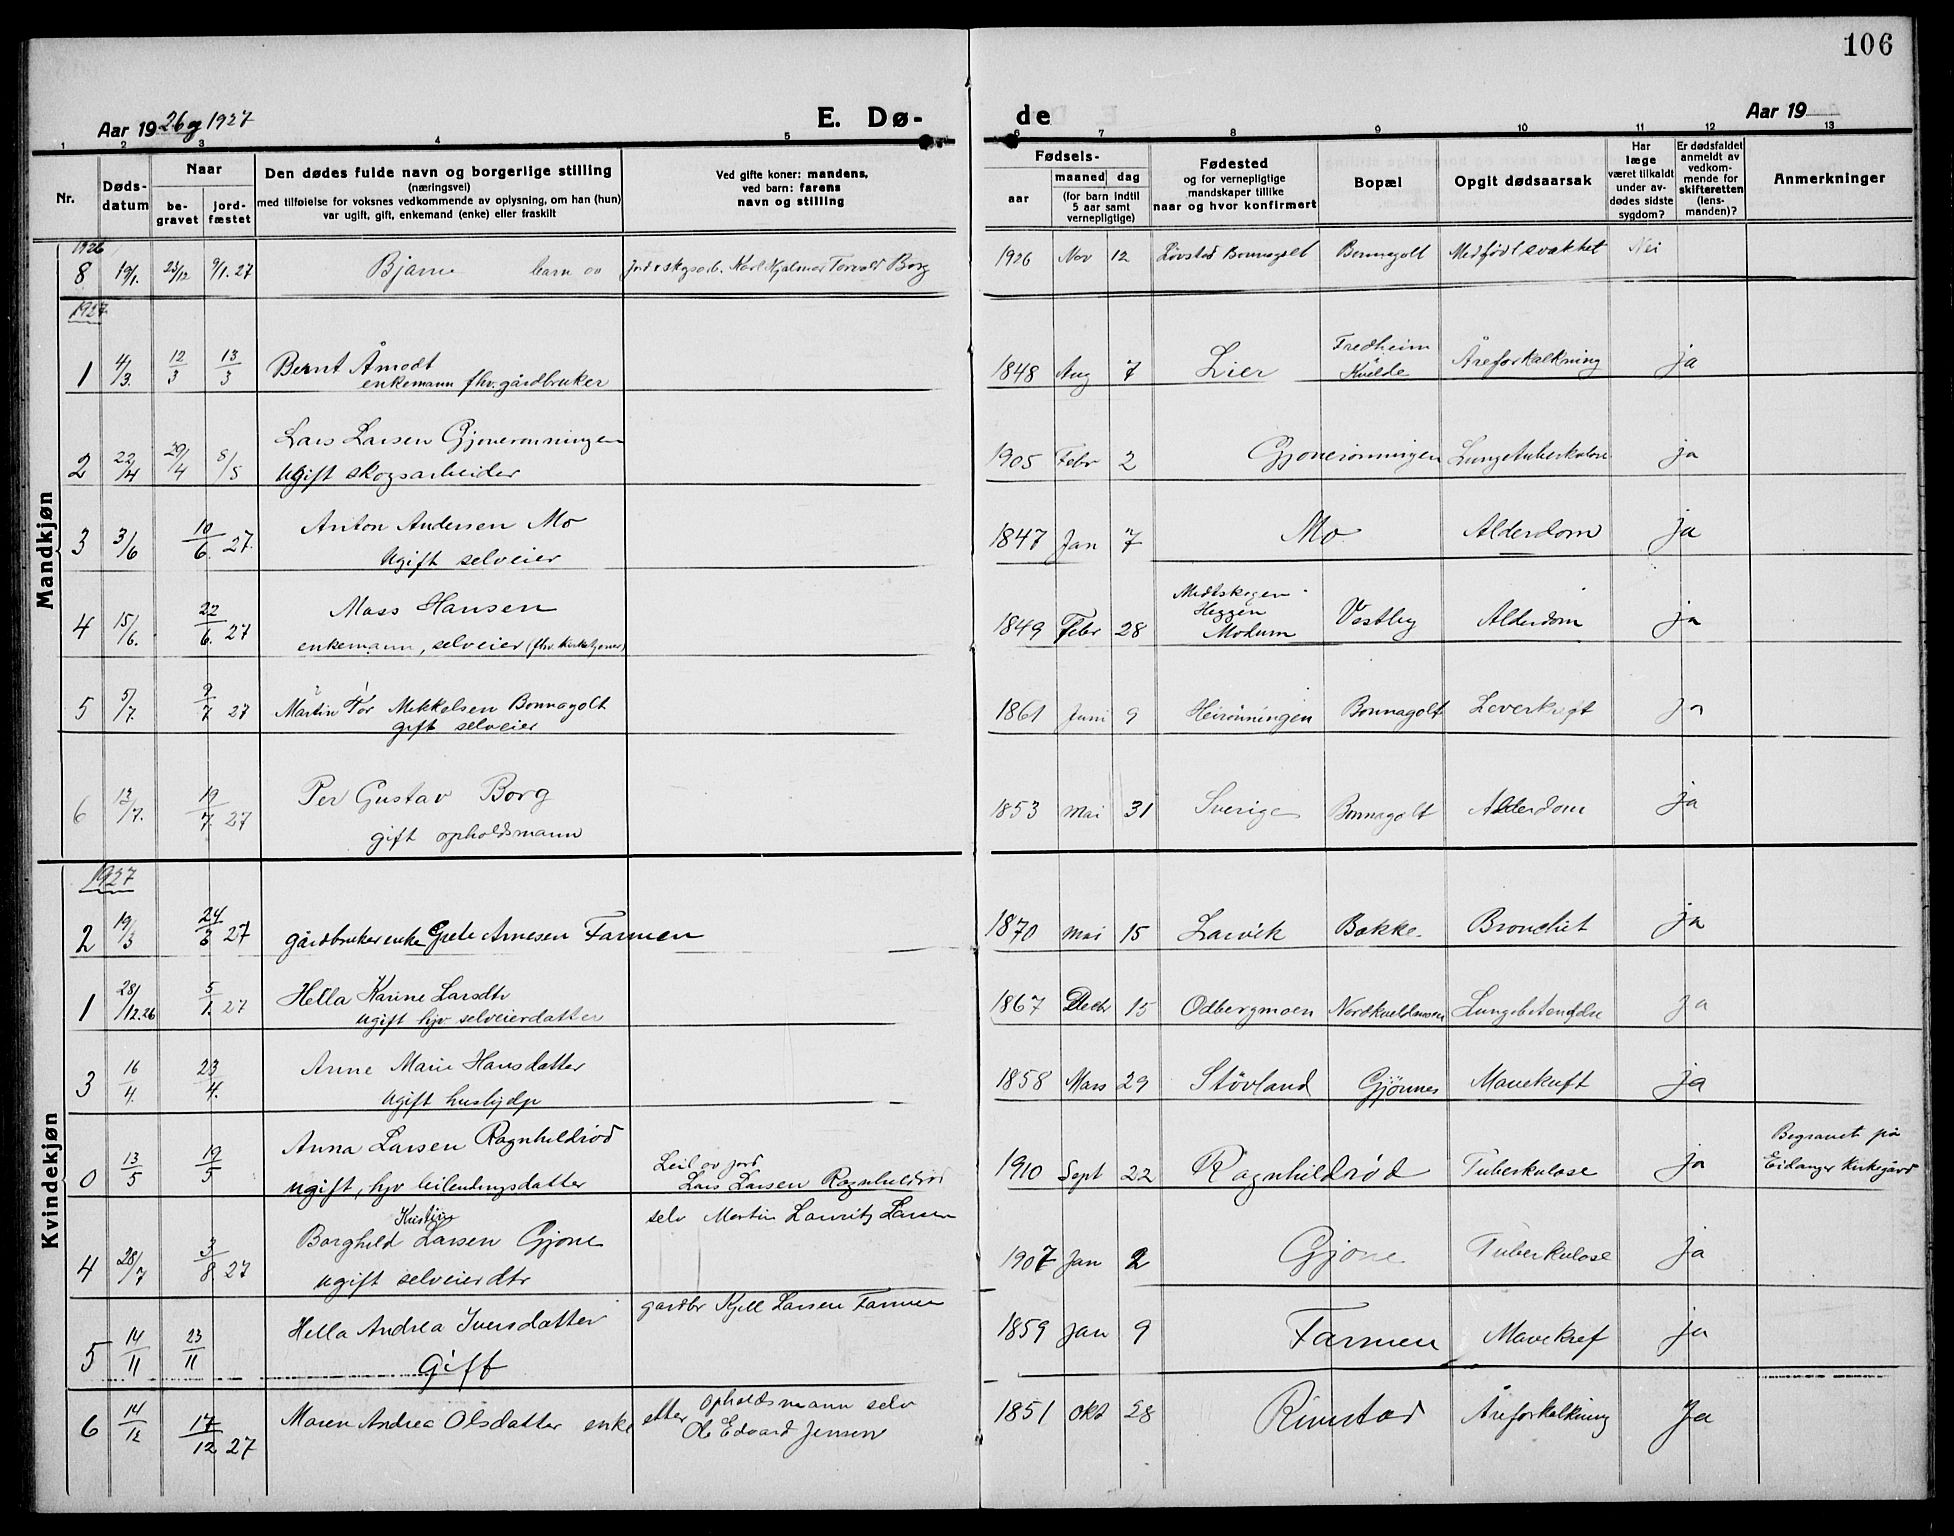 106
Aar 1926 og 1927 E. Dø- de Aar 19
1 2 3 4 5 6 7 8 9 10 11 12 13
Nr.
Døds-
datum
Naar
be-
gravet
jord-
fæstet
Den dødes fulde navn og borgerlige stilling
(næringsvei)
med tilføielse for voksnes vedkommende av oplysning, om han (hun)
var ugift, gift, enkemand (enke) eller fraskilt
Ved gifte koner: mandens,
ved barn: farens
navn og stilling
Fødsels-
aar
maaned dag
(for barn indtil
5 aar samt
vernepligtige)
Fødested
og for vernepligtige
mandskaper tillike
naar og hvor konfirmert
Bopæl
Opgit dødsaarsak
Har
læge
været tilkaldt
under av-
dødes sidste
sygdom?
Er dødsfaldet
anmeldt av
vedkom-
mende for
skifteretten
(lens-
manden)?
Anmerkninger
Mandkjøn
1926
8 19/1. 23/12 9/1. 27 Bjarne barn av Jord o skogsarb. Karl Hjalmar Torvald Borg 1926 Nov 12 Løvstad Bonnagolt Bonnagolt Medfødt svakhet Nei
1927
1 4/3. 12/3 13/3 Bernt Åmodt 1848 Aug 7 Lier Fredheim Åreforkalkning ja
enkemann fhv. gårdbruker Kvelde
2 22/4 29/4 8/5 Lars Larsen Gjonerønningen 1905 Febr 2 Gjonerønningen Lungetuberkulose ja
ugift skogsarbeider
3 3/6 10/6. 27. Anton Andersen Mo 1847 Jan 7 Mo Alderdom ja
ugift selveier
4 15/6. 22/6. 27 Mass Hansen 1849 Febr 28 Midtskogen Heggen Modum Vestby Alderdom ja
enkemann, selveier (fhv. kirketjener)
5 5/7. 9/7 27 Martin Tor Mikkelsen Bonnagolt 1861 Juni 9 Heirønningen Bonnagolt Leverkreft ja
gift selveier
6 12/7. 19/7. 27 Per Gustav Borg 1853 Mai 31 Sverige Bonnagolt Alderdom ja
gift opholdsmann
Kvindekjøn
1927
2 19/3 24/3 27 gårdbrukerenke Grete Arnesen Farmen 1870 Mai 15 Larvik Bakke. Bronchit ja
1 28/12.26 5/1. 27 Hella Karine Larsdtr 1867 Decbr 15 Odbergmoen Nordkveldmoen Lungebetendelse ja
ugift hjv selveierdatter
3 16/4. 23/4. Anne Marie Hansdatter 1858 Mars 29 Støvland Gjønnes Mavekreft ja
ugift hushjelp
0 13/5 19/5 Anna Larsen Ragnhildrød Leil. av jord 1910 Sept 22 Ragnhildrød Tuberkulose ja Begravet på
ugift, hjv leilendingsdatter Lars Larsen Ragnhildrød Eidanger Kirkegård
4 28/7 3/8 27 Borghild Kristine Larsen Gjone selv Martin Lauritz Larsen 1907 Jan 2 Gjone Tuberkulose ja
ugift selveierdtr
5 14/11 23/11 Hella Andrea Iversdatter gårdbr Kjell Larsen Farmen 1859 Jan 9 Farmen Mavekref ja
Gift
6 14/12 17/12 27 Maren Andrea Olsdatter enke etter opholdsmann selv 1851 Okt 28 Rimstad Åreforkalkning Ja
Ole Edvard Jensen